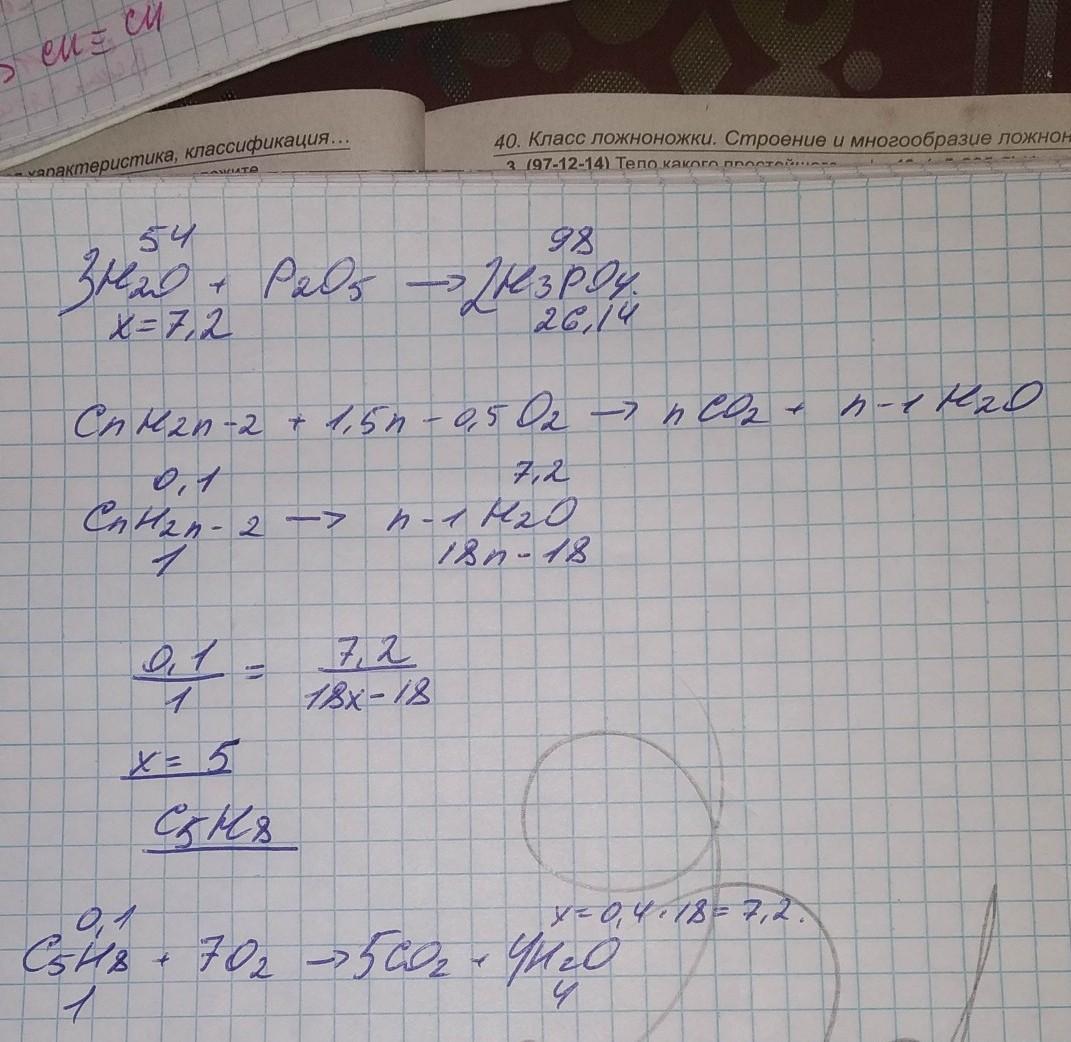 см = см
характеристика, классификация...
40. Класс ложноножки. Строение и многообразие ложнон
3. (97-12-14) Тело какого простейшего
54 98
3H2O + P2O5 → 2H3PO4.
x=7,2 26,14
CnH2n-2 + 1,5n - 0,5 O2 → nCO2 + n-1 H2O
0,1 7,2
CnH2n-2 → n-1 H2O
1 18n-18
0,1 = 7,2
1 18x-18
x= 5
C5H8
0,1 x=0,4·18=7,2.
C5H8 + 7O2 → 5CO2 + 4H2O
1 4